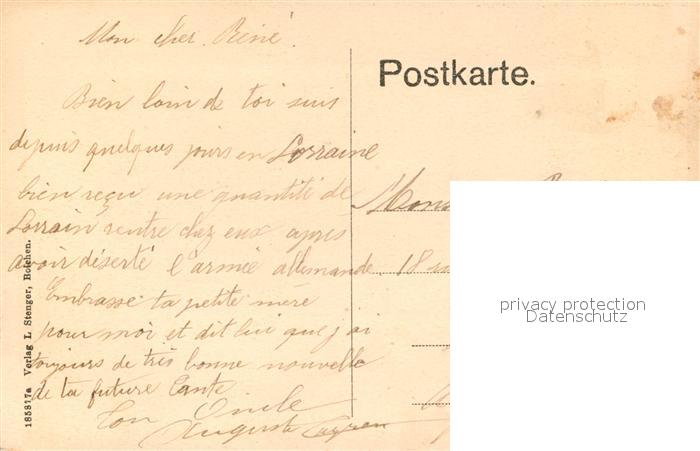 Mon cher René.
Bien loin de toi suis
depuis quelques jours en Lorraine
bien reçu une quantité de
Lorrain rentre chez eux apres
avoir déserté l'armée allemande
Embrasse ta petite mère
pour moi et dit lui que j'ai
toujours de très bonne nouvelle
de ta future tante
Ton Oncle
Auguste
Postkarte.
18
185817a Verlag L. Stenger, Bolchen.
privacy protection
Datenschutz